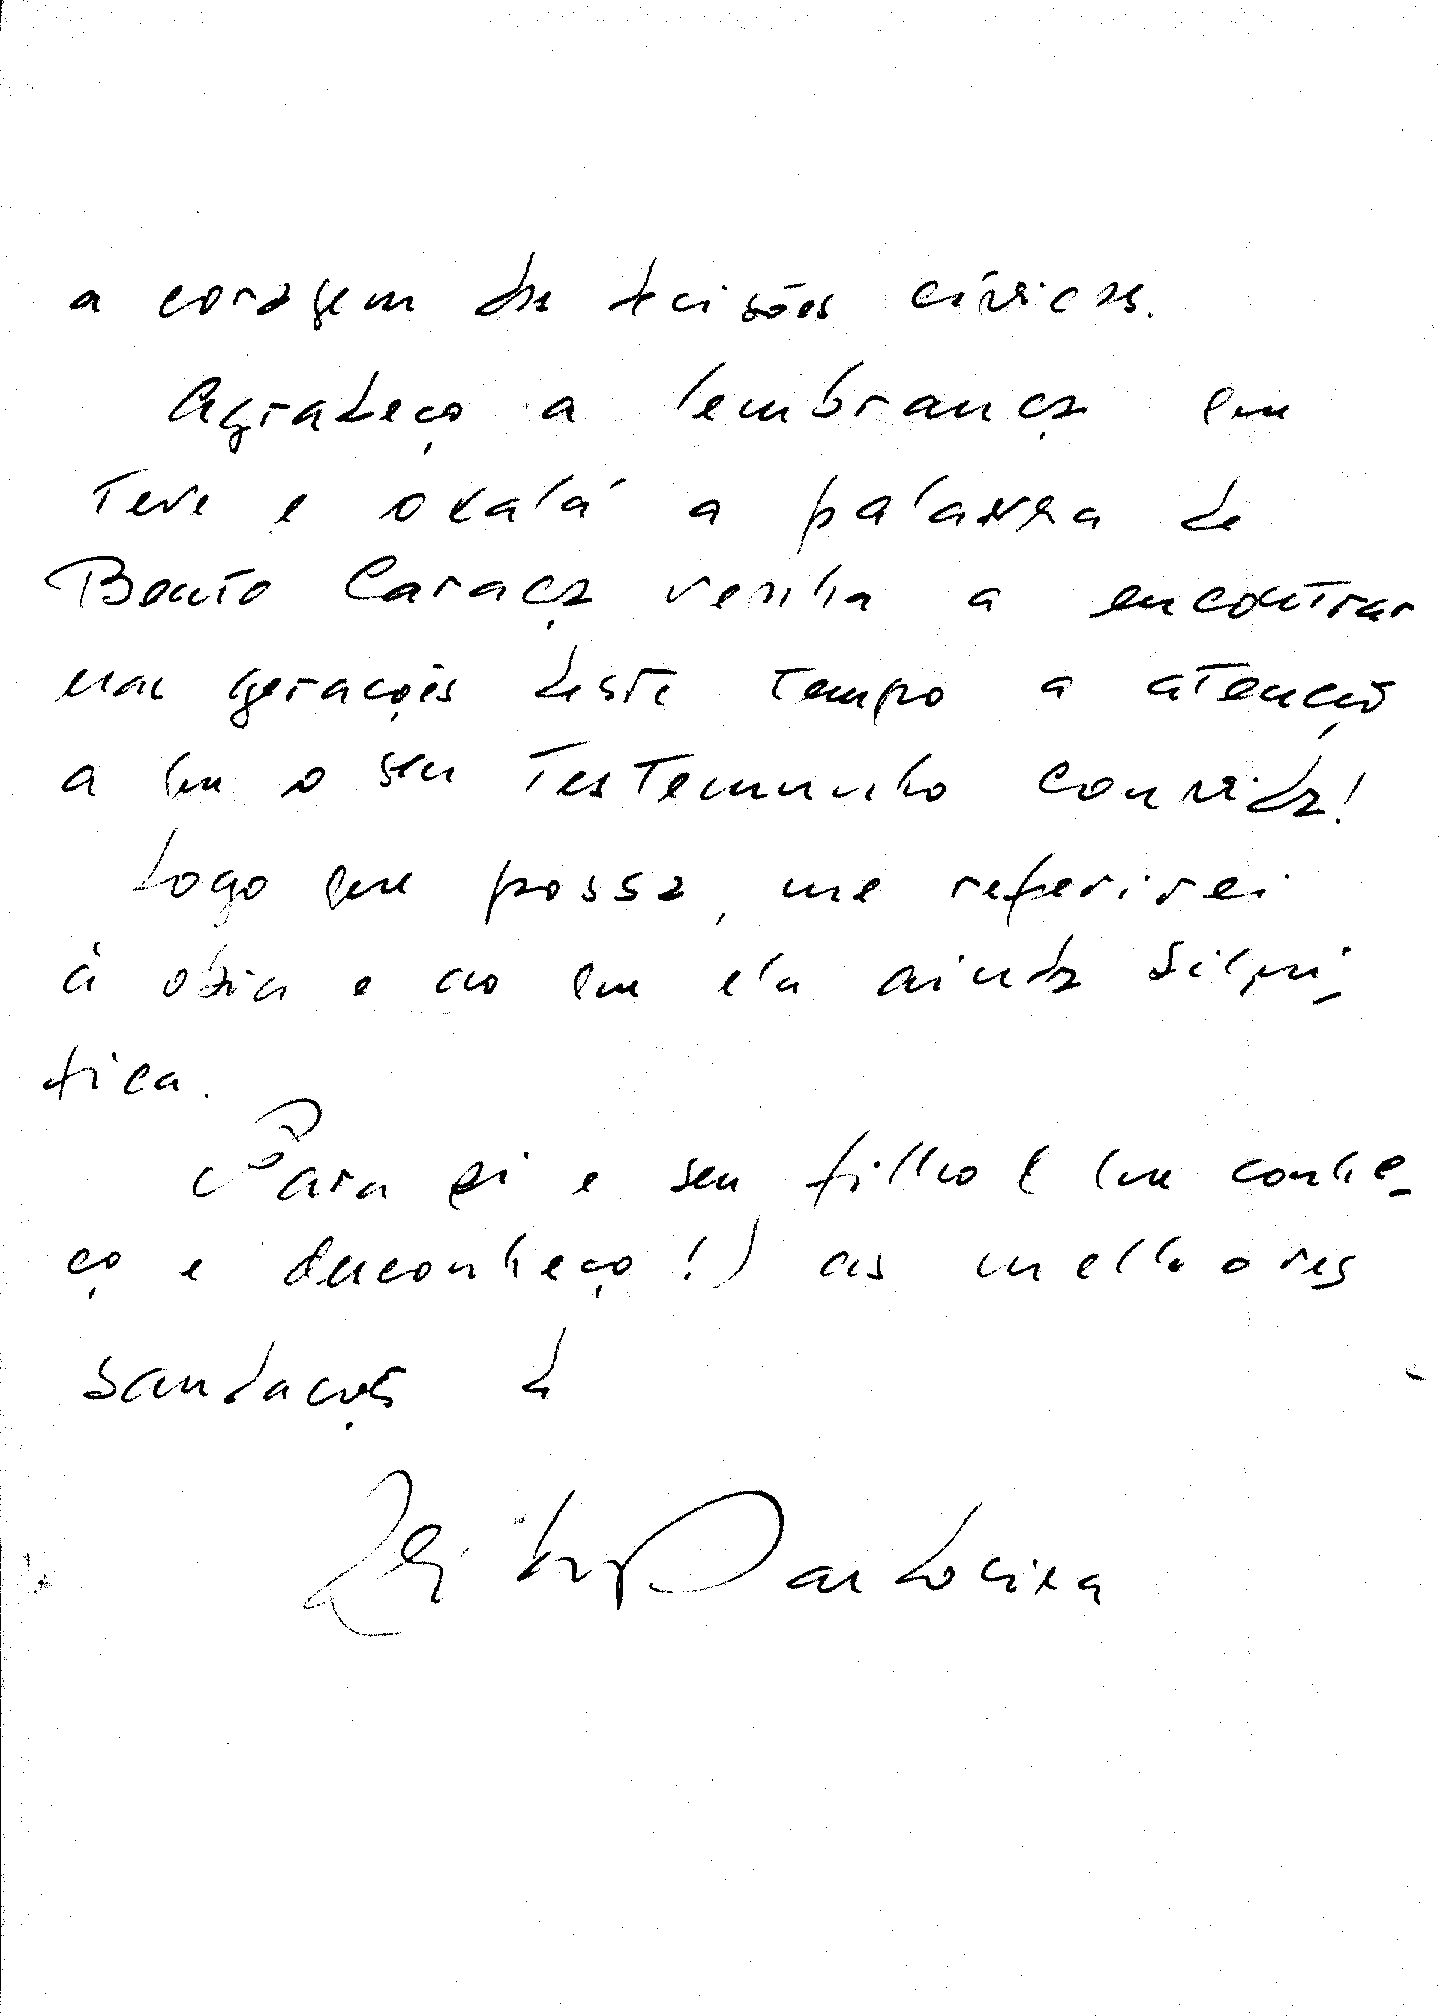 a coragem das decisões cívicas.
Agradeço a lembrança que
teve e oxalá a palavra de
Bento Caraça venha a encontrar
nas gerações deste tempo a atenção
a que o seu testemunho convida!
Logo que possa, me referirei
à obra e ao que ela ainda signi-
fica.
Para si e seu filho (que conhe-
ço e desconheço!) as melhores
saudações de